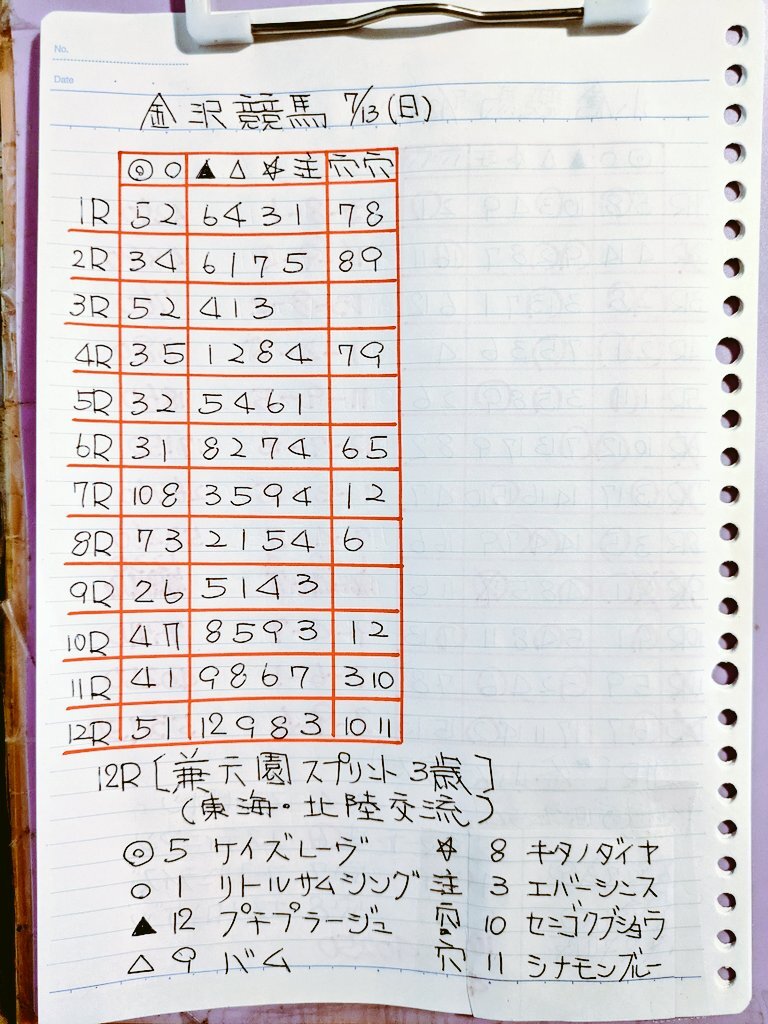 No.
Date
金沢競馬 7/13(日)
◎ ○ ▲ △ ☆ 主 穴 穴
1R 5 2 6 4 3 1 7 8
2R 3 4 6 1 7 5 8 9
3R 5 2 4 1 3
4R 3 5 1 2 8 4 7 9
5R 3 2 5 4 6 1
6R 3 1 8 2 7 4 6 5
7R 10 8 3 5 9 4 1 2
8R 7 3 2 1 5 4 6
9R 2 6 5 1 4 3
10R 4 7 8 5 9 3 1 2
11R 4 1 9 8 6 7 3 10
12R 5 1 12 9 8 3 10 11
12R [兼六園スプリント3歳]
(東海・北陸交流)
◎ 5 ケイズレーヴ ☆ 8 キタノダイヤ
○ 1 リトルサムシング 注 3 エバーシニス
▲ 12 プチプラージュ 穴 10 セニゴクブショウ
△ 9 バム 穴 11 シナモンブルー